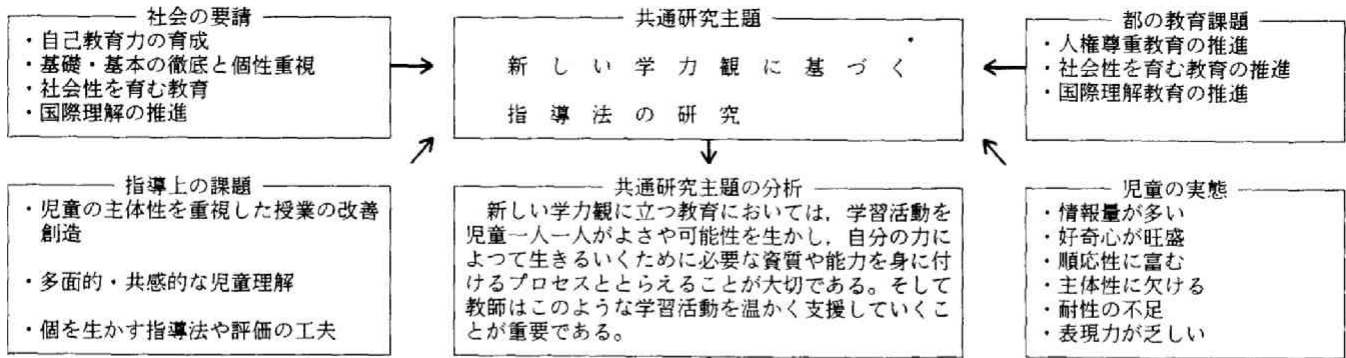 社会の要請
・自己教育力の育成
・基礎・基本の徹底と個性重視
・社会性を育む教育
・国際理解の推進
共通研究主題
新しい学力観に基づく
指導法の研究
都の教育課題
・人権尊重教育の推進
・社会性を育む教育の推進
・国際理解教育の推進
指導上の課題
・児童の主体性を重視した授業の改善
創造
・多面的・共感的な児童理解
・個を生かす指導法や評価の工夫
共通研究主題の分析
新しい学力観に立つ教育においては，学習活動を
児童一人一人がよさや可能性を生かし，自分の力に
よつて生きるいくために必要な資質や能力を身に付
けるプロセスととらえることが大切である。そして
教師はこのような学習活動を温かく支援していくこ
とが重要である。
児童の実態
・情報量が多い
・好奇心が旺盛
・順応性に富む
・主体性に欠ける
・耐性の不足
・表現力が乏しい